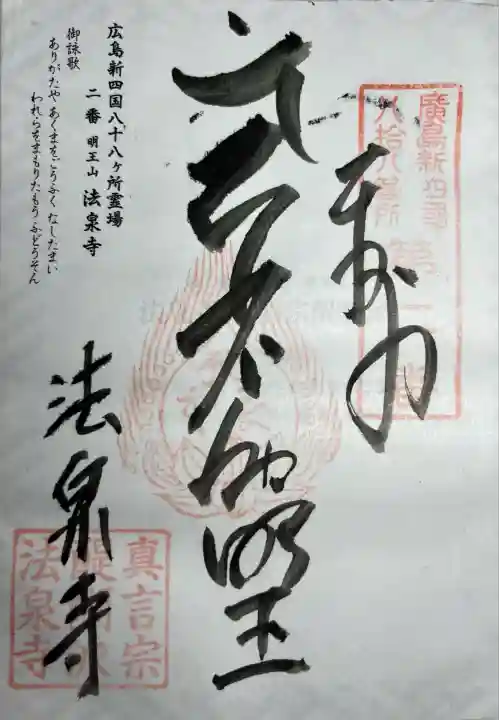 廣島新四国
八拾八ヶ所
第二番
奉拝
不動明王
法泉寺
真言宗
醍醐派
法泉寺
広島新四国八十八ヶ所霊場
二番 明王山 法泉寺
御詠歌
ありがたや あくまをごうふく なしたまい
われらをまもりたもう ふどうそん